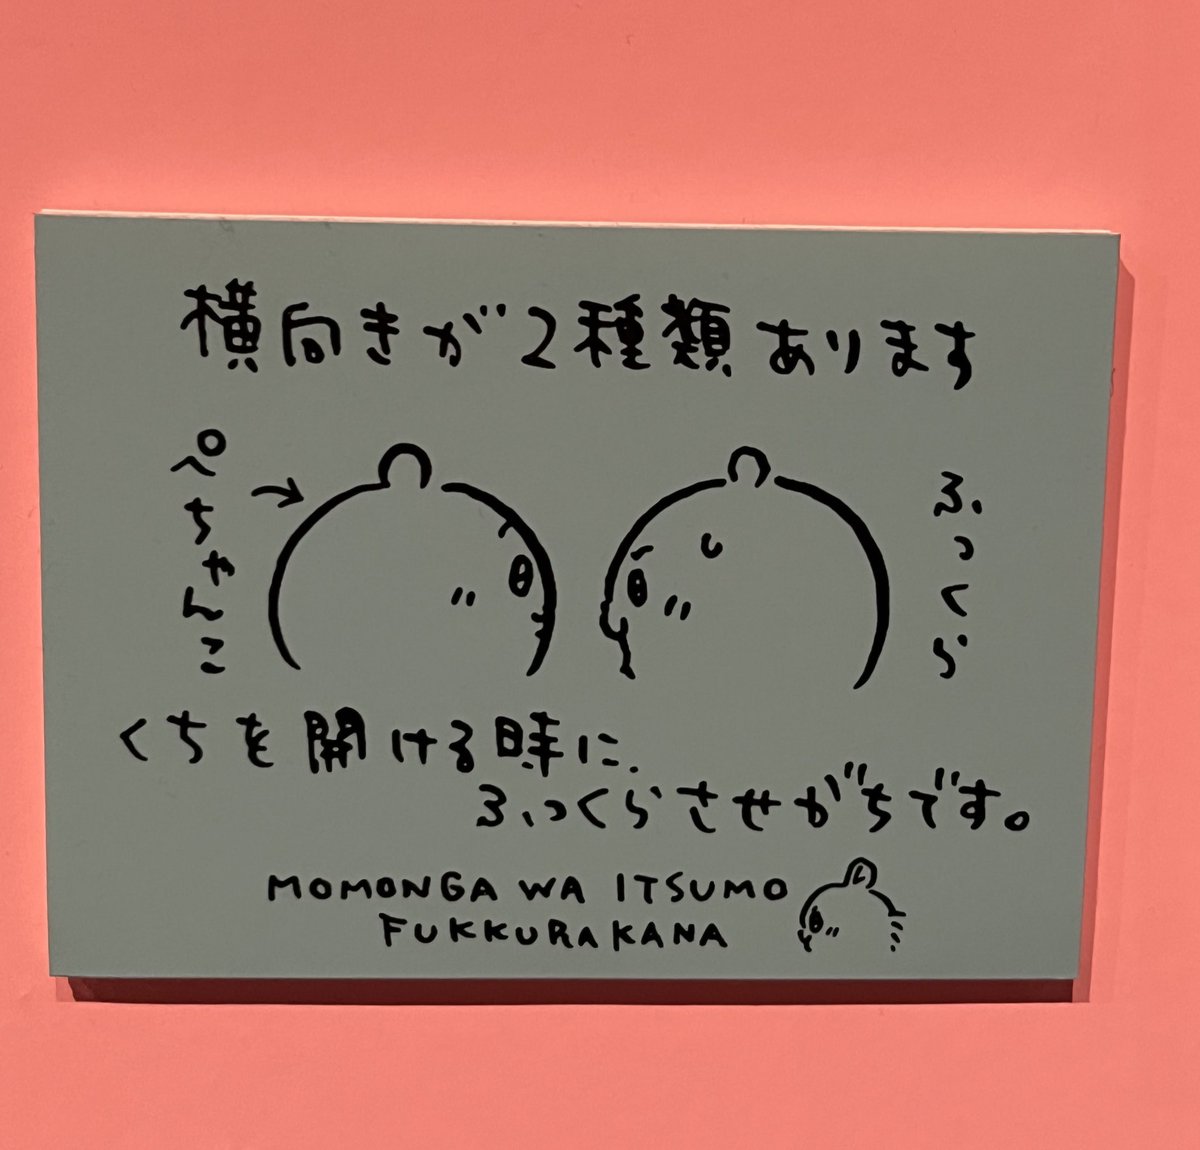 横向きが2種類あります
ぺちゃんこ
ふっくら
くちを開ける時に、
ふっくらさせがちです。
MOMONGA WA ITSUMO
FUKKURAKANA